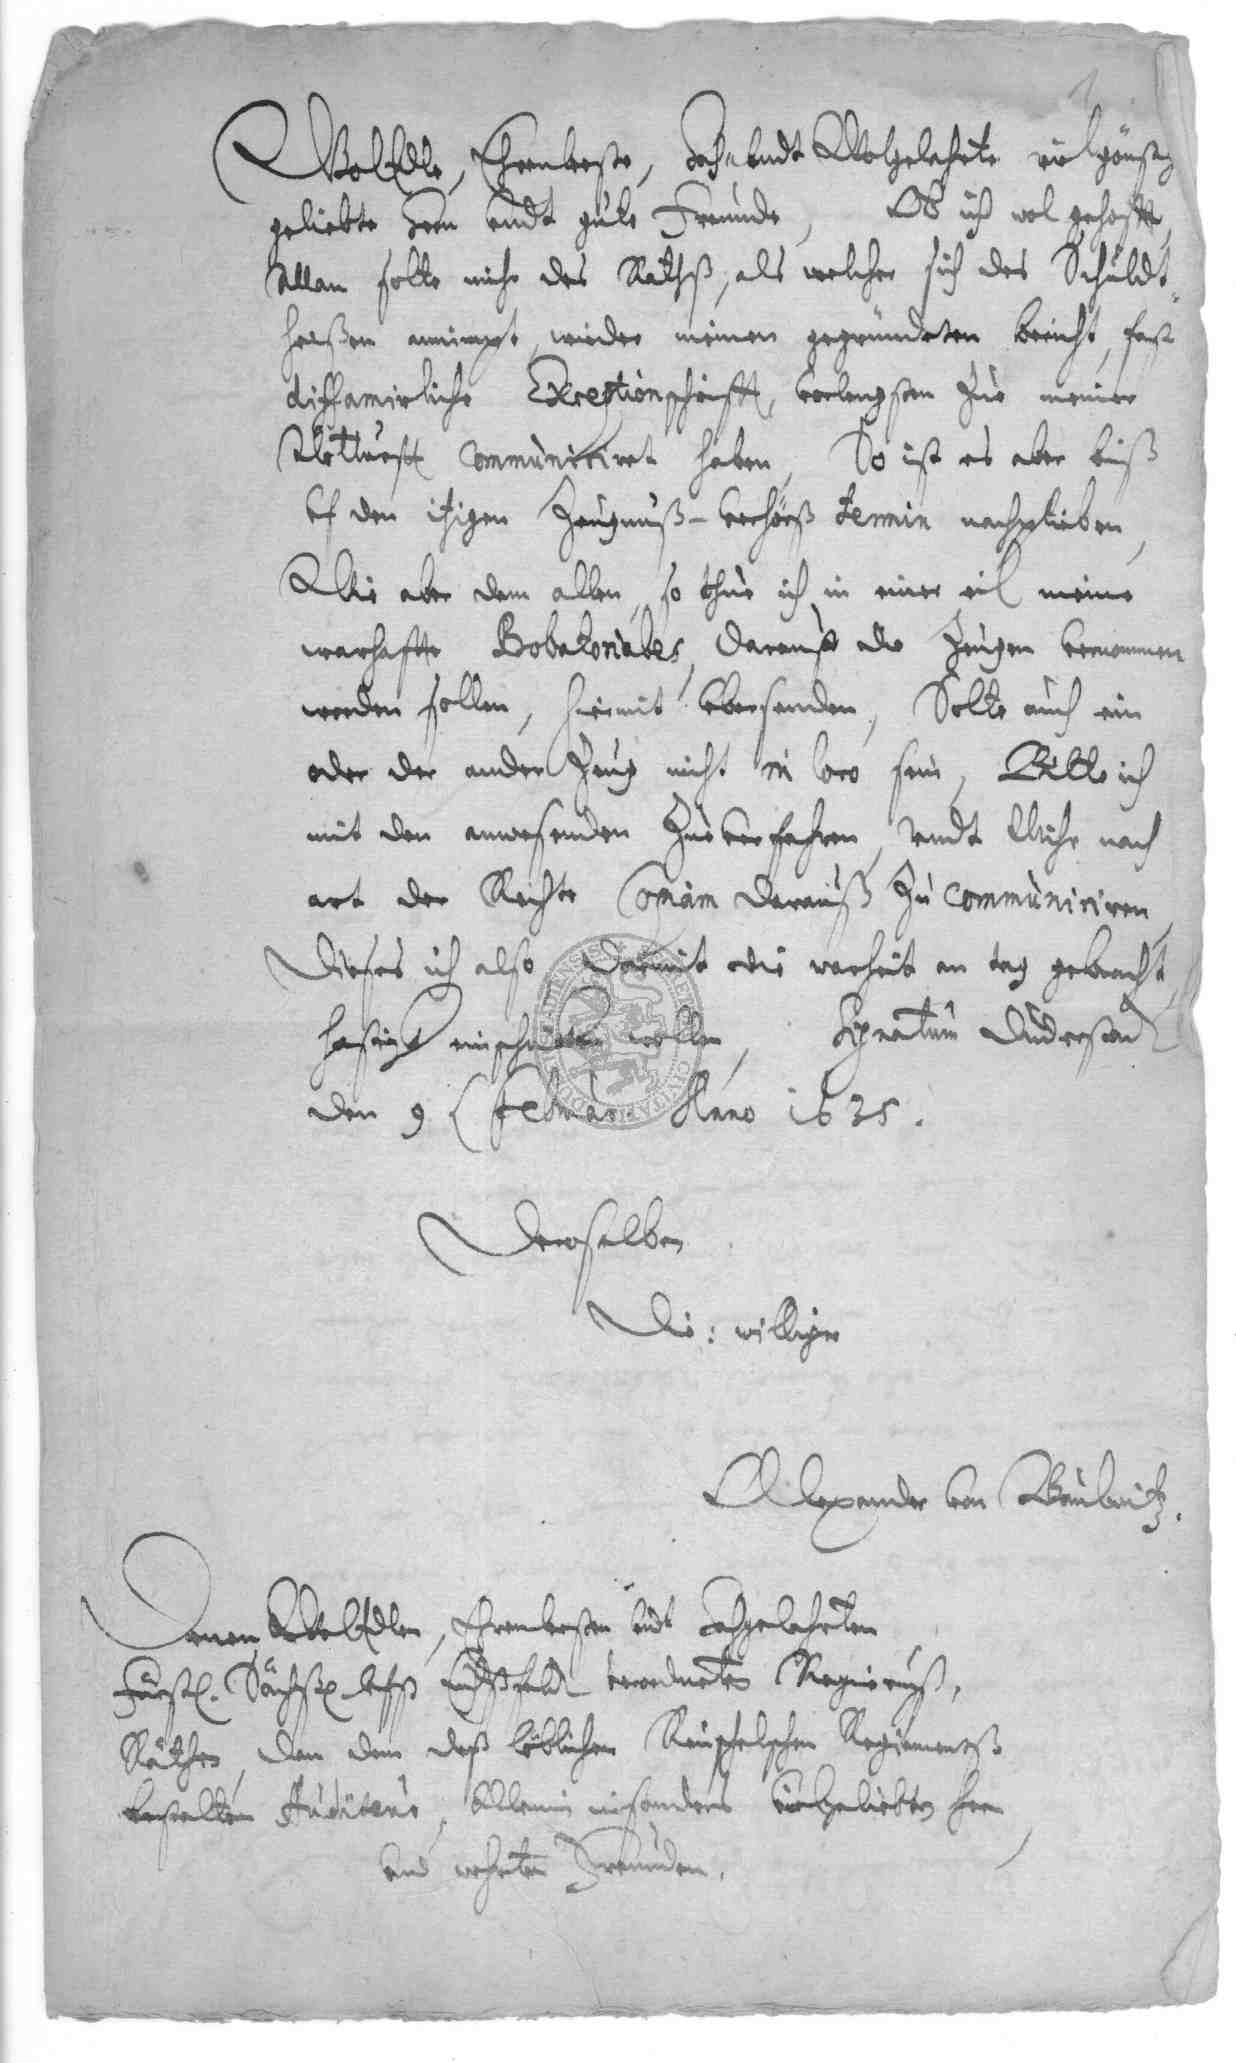 WolEdle, Ehrnveste, Hoch- vndt Wolgelahrte vielgönstig
geliebte Herrn vndt gute Freunde, Ob ich wol gehofft,
Man solte mihr des Rathß, als welcher sich des Schuldt-
heißen annimpt, wieder meinen gegründeten bericht, fast
diffamirliche Exceptionschrifft, vorlengsten zue meiner
Notturfft communiciret haben, So ist es aber biß
vf den itzigen Zeugnuß-verhörß termin nachplieben,
Wie aber dem allen, so thue ich in einer eil meine
warhaffte Probatoriales, darauß die Zeugen vernommen
werden sollen, hiermit vbersenden, Solte auch ein
oder der ander Zeug nicht in loco sein, Bitte ich
mit den anwesenden zueverfahren, vndt Mihr nach
art der Rechte Copiam darauß zu communiciren,
Dieses ich also damit die warheit an tag gebracht,
hastigst einschicken wollen, Signatum Duderstadt
den 9 Februar: Anno 1635.
Deroselben
Die: williger
Alexander von
Denen WolEdlen, Ehrenvesten vndt Hochgelahrten
Fürstl. Sächsl. vfß Eichßfeldt verordneten Regierungß,
Räthen, dan dem deß löblichen Regimentß
bestalten Auditeur, Meinen insonders vielgeliebten Herrn
vnd wehrten Freunden.